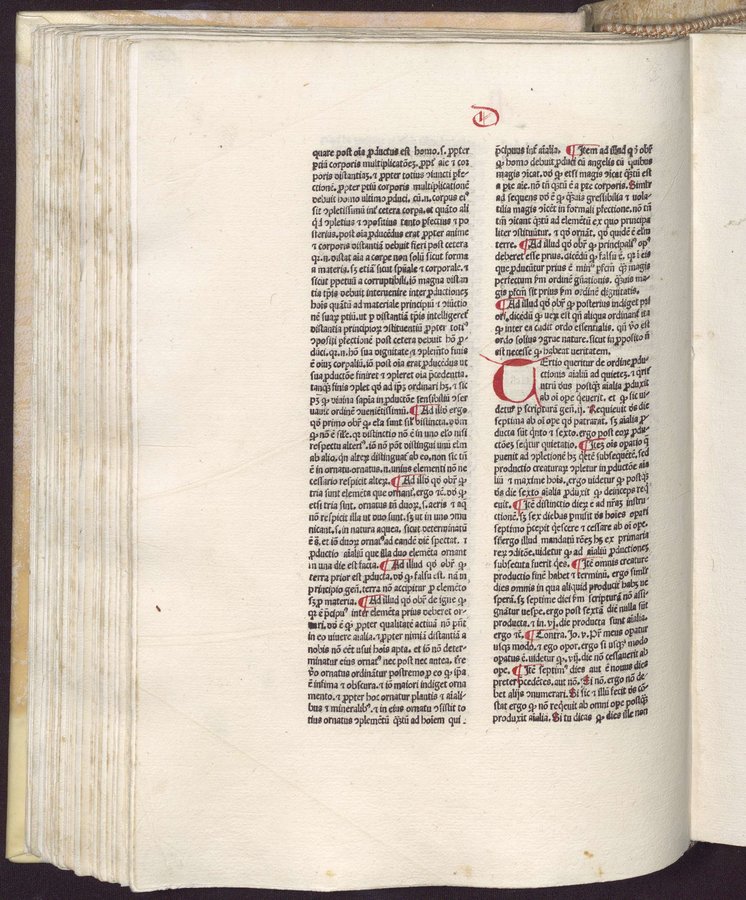 quare post oīa ꝓductus est homo. s. ꝓpter
ptiā corporis multiplicatōeꝫ. ꝓpt̄ aīe ⁊ cor
poris ꝺistantiaꝫ. ⁊ ꝓpter totius ꝯiuncti ꝑfe⸗
ctionē. Pꝓpter ptiū corporis multiplicationē
debuit homo ultimo ꝓduci. cū. n. corpus eiꝰ
sit ꝯpletissimū inť cetera corpa. et quāto ali
qd̄ ꝯpletius ⁊ ꝯpositius tanto ꝑfectius ⁊ po
sterius. post oīa ꝓducēdus erat ꝓpter anime
⁊ corporis ꝺistantiā ꝺebuit fieri post cetera
qꝛ. n. ꝺistat aīa a corpe non solū sicut forma
a materia. sꝫ etiā sicut spūale ⁊ corporale. ⁊
sicut ꝑpetuū a corruptibili. iō magna ꝺistan
tia tpīs ꝺebuit interuenire inter ꝓductioneꝫ
hoīs quātū ad materiale principiū ⁊ ꝯiūctio
nē suaꝝ ptiū. ut p ꝺistantiā tpīs intelligeret̄
ꝺistantia principioꝝ ꝯstituentiū ꝓpter totiꝰ
ꝯpositi ꝑfectionē post cetera ꝺebuit hō ꝓ⸗
duci. qꝛ. n. hō sua ꝺignitate ⁊ ꝯplemēto finis
ē oīuꝫ corpaliū. iō post oīa erat ꝓducēdus ut
sua ꝓductōe finiret ⁊ ꝯpleret oīa p̄cedentia.
tanqꝫ finis ꝯplet qd̄ ad ip̄ꝫ ordinari hꝫ. ⁊ sic
pꝫ ꝙ ꝺiuina sap̄ia in ꝓductōe sensibiliū ꝯser
uauit ordinē ꝯueniētissimū. ¶ Ad illō ergo
qd̄ primo obr̄ ꝙ ela sunt sił ꝺistincta. ꝺōm
ꝙ nō ē sił̄e. qꝛ ꝺistinctio nō ē in uno elo nisi
respectu alteriꝰ. iō nō pōt ꝺistingui unū elm
ab alio. qn̄ alteꝝ ꝺistinguat̄ ab eo. non sic tn̄
ē in ornatu. ornatus. n. unius elementi nō ne
cessario respicit alteꝝ. ¶ Ad illō qd̄ obr̄ ꝙ
tria sunt elemēta que ornant̄. ergo ⁊č. ꝺō ꝙ
etsi tria sunt. ornatus tn̄ ꝺuoꝝ. s. aeris ⁊ aq̄
nō respicit illa ut ꝺuo sunt. sꝫ ut in uno ꝯmu
nicant. s. in natura aquea. sicut ꝺeterminatū
ē s̄. et iō ꝺuoꝝ ornatꝰ ad eandē ꝺiē spectat. ⁊
ꝓductio aīaliū que illa ꝺuo elemēta ornant
in una ꝺie est facta. ¶ Ad illud qd̄ obr̄ ꝙ
terra prior est ꝓducta. ꝺō ꝙ falsū est. nā in
principio gen̄. terra nō accipitur ꝓ elemēto
sꝫ ꝓ materia. ¶ Ad illud qd̄ obr̄ de igne ꝙ
qꝛ ē p̄cipuꝰ inter elemēta prius ꝺeberet or⸗
nari. ꝺō ē ꝙ ꝓpter qualitatē actiuā nō pn̄t
in eo uiuere aīalia. ⁊ ꝓpter nimiā ꝺistantiā a
nobis nō eēt usui hoīs apta. et iō nō ꝺeter⸗
minatur eius ornatꝰ nec post nec antea. terre
ꝟo ornatus ordinātur postremo ꝓ eo ꝙ ip̄a
ē infima ⁊ obscura. ⁊ iō maiori indiget orna
mento. ⁊ ꝓpter hoc ornatur plantis ⁊ aīali⸗
bus ⁊ mineralibꝰ. ⁊ in eius ornatu ꝯsistit to
tius ornatus ꝯplemētū qꝫtū ad hoīem qui.
p̄cipuus inť aīalia. ¶ Item ad illud qd̄ obr̄
ꝙ homo ꝺebuit ꝓduci cū angelis cū quibus
magis ꝯicat. ꝺō ꝙ etsi magis ꝯicat qꝫtū est
a pte aīe. nō tn̄ qꝫtū ē a pte corporis. Similr
ad sequens ꝺō ē ꝙ qꝫuis gressibilia ⁊ uola⸗
tilia magis ꝯicēt in formali ꝑfectione. nō tn̄
tm̄ ꝯicant qꝫtū ad elementū ex quo principa
liter ꝯstituūtur. ⁊ qd̄ ornāt. qd̄ quidē ē elm̄
terre. ¶ Ad illud qd̄ obr̄ ꝙ principaliꝰ opꝰ
deberet esse prius. ꝺicēdū ꝙ falsū ē. qꝛ ī eis
que ꝓducūtur prius ē minꝰ ꝑfcm̄ qꝫ magis
perfectum ẜm ordinē gn̄ationis. quāuis ma⸗
gis ꝑfcm̄ sit prius ẜm ordinē ꝺignitatis.
¶ Ad illud qd̄ obr̄ ꝙ posterius indiget pri
ori. ꝺicēdū ꝙ ueꝝ est qn̄ aliqua ordinant̄ ita
ꝙ inter ea cadit ordo essentialis. qn̄ ꝟo est
ordo solius ꝯgrue nature. sicut in ꝓposito nō
est necesse ꝙ habeat ueritatem.
Tertio queritur de ordine ꝓdu⸗
ctionis aīaliū ad quieteꝫ. ⁊ qrit̄
utrū ꝺeus postqꝫ aīalia ꝓduxit
ab oī ope q̄euerit. et ꝙ sic ui⸗
detur p scripturā gen̄. ij. Requieuit ꝺs die
septima ab oī ope qd̄ patrarat. sꝫ aīalia ꝓ⸗
ducta sūt qn̄to ⁊ sexto. ergo post eoꝝ ꝓdu⸗
ctōeꝫ sequit̄ quietatio. ¶ Iteꝫ oīs opatio q̄
puenit ad ꝯpletionē hꝫ q̄etē subsequētē. sed
productio creaturaꝝ ꝯpletur in ꝓductōe aīa
liū ⁊ maxime hoīs. ergo uidetur ꝙ postqꝫ
ꝺs die sexto aīalia ꝓduxit ꝙ ꝺeinceps req̄
euit. ¶ Itē distinctio dieꝝ ē ad nr̄aꝫ instru⸗
ctionē. sꝫ sex diebus p̄misit ꝺs hoīes opari
septimo p̄cepit q̄escere ⁊ cessare ab oī ope.
sꝫ ergo illud mandatū rōneꝫ hꝫ ex primaria
reꝝ ꝯditōe. uidetur ꝙ ad aīaliū ꝓductioneꝫ
subsecuta fuerit q̄es. ¶ Itē omnis creature
productio finē habet ⁊ terminū. ergo similr
dies omnis in qua aliquid producit̄ habꝫ ue
sperā. sꝫ septime diei ẜm scripturā nō assi⸗
gnātur uespe. ergo post sextā die nulla sūt
producta. ⁊ in. vj. die producta sunt aīalia.
ergo ⁊č. ¶ Contra. Jo. v. Pr̄ meus opatur
usqꝫ modo. ⁊ ego opor. ergo si usqꝫ modo
opatus ē. uidetur ꝙ. vij. die nō cessauerit ab
ope. ¶ Itē septimꝰ dies aut ē nouus dies
preter p̄cedētes. aut nō. Si nō. ergo nō de⸗
bet alijs ꝯnumerari. Si sic ⁊ illū fecit ꝺs cō⸗
stat ergo ꝙ nō req̄euit ab omni ope postqꝫ
produxit aīalia. Si tu dicas ꝙ dies ille non